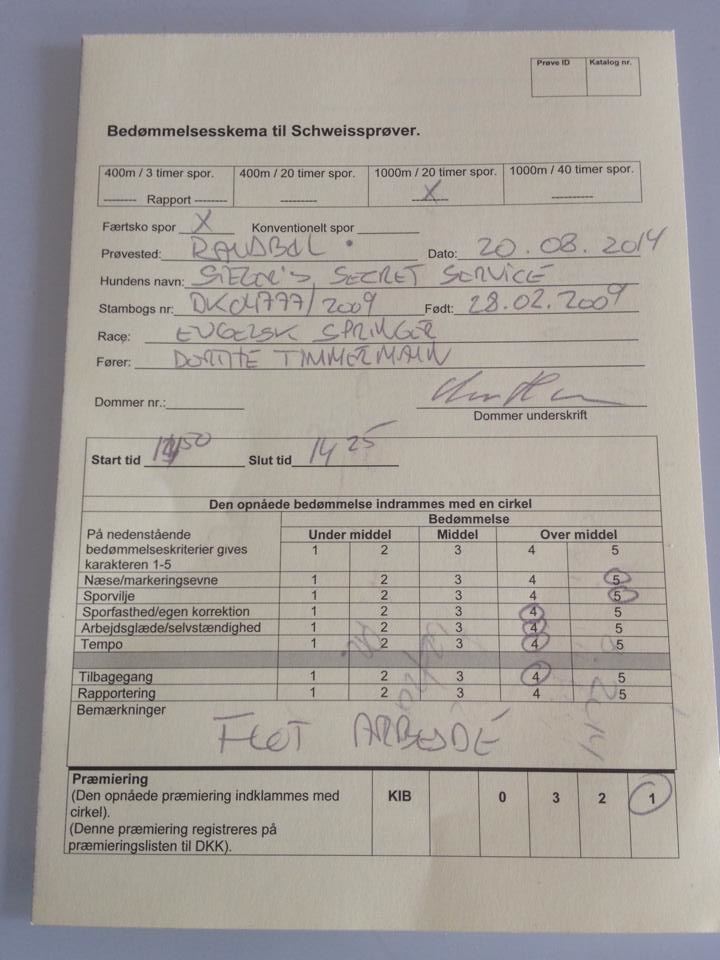 Prøve ID Katalog nr.
Bedømmelsesskema til Schweissprøver.
400m / 3 timer spor. 400m / 20 timer spor. 1000m / 20 timer spor. 1000m / 40 timer spor.
-------- Rapport -------- --------- X --------- ----------
Færtsko spor X Konventionelt spor
Prøvested: RANDBØL Dato: 20.08.2014
Hundens navn: SECRET SERVICE
Stambogs nr: /2009 Født: 28.02.2009
Race: ENGELSK SPRINGER
Fører: DORTHE TIMMERMANN
Dommer nr.:
Dommer underskrift
Start tid Slut tid 14 25
Den opnåede bedømmelse indrammes med en cirkel
Bedømmelse
På nedenstående Under middel Middel Over middel
bedømmelseskriterier gives 1 2 3 4 5
karakteren 1-5
Næse/markeringsevne 1 2 3 4 5
Sporvilje 1 2 3 4 5
Sporfasthed/egen korrektion 1 2 3 4 5
Arbejdsglæde/selvstændighed 1 2 3 4 5
Tempo 1 2 3 4 5
Tilbagegang 1 2 3 4 5
Rapportering 1 2 3 4 5
Bemærkninger
FLOT ARBEJDE
Præmiering
(Den opnåede præmiering indklammes med KIB 0 3 2 1
cirkel).
(Denne præmiering registreres på
præmieringslisten til DKK).